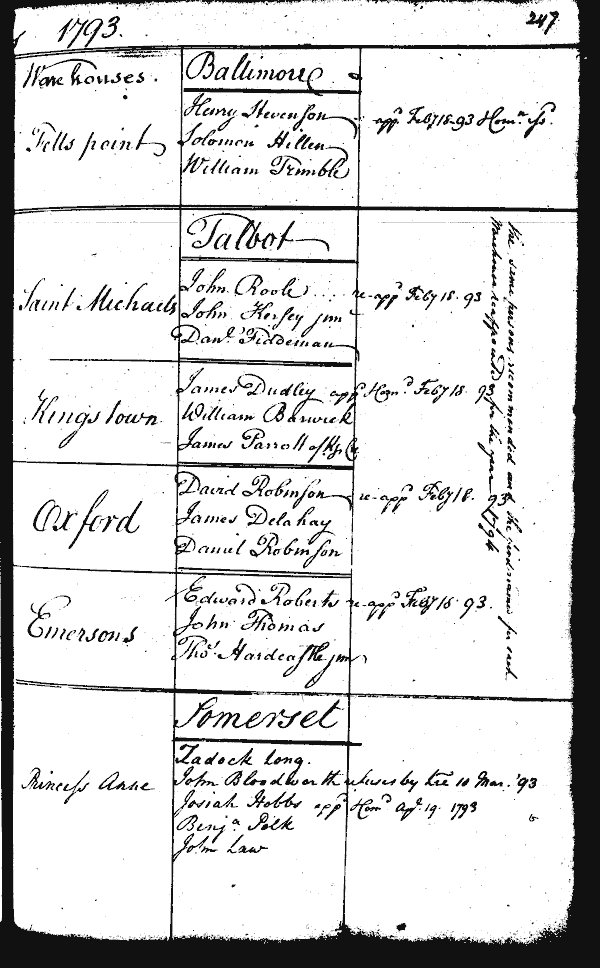 1793.
247
Warehouses.
Baltimore
Fells point
Henry Stevenson app.d Feb.y 18. 93
Solomon Hillen
William Trimble
Talbot
Saint Michaels
John Roole re-app.d Feb.y 18. 93
John Kersey jun.r
Dan.l Fiddeman
Kings town
James Dudley app.d Feb.y 18. 93
William Barwick
James Parrott of
Oxford
David Robinson re-app.d Feb.y 18. 93
James Delahay
Daniel Robinson
Emersons
Edward Roberts re-app.d Feb.y 18. 93.
John Thomas
Tho.s Hardcastle jun.r
the same persons recommended and the first named for each
Warehouse reappointed for the year 1794
Somerset
Princess Anne
Zadock Long.
John Bloodworth refuses by 10 Mar. '93
Josiah Hobbs app.d Ap.l 19. 1793
Benj.a Polk
John Law